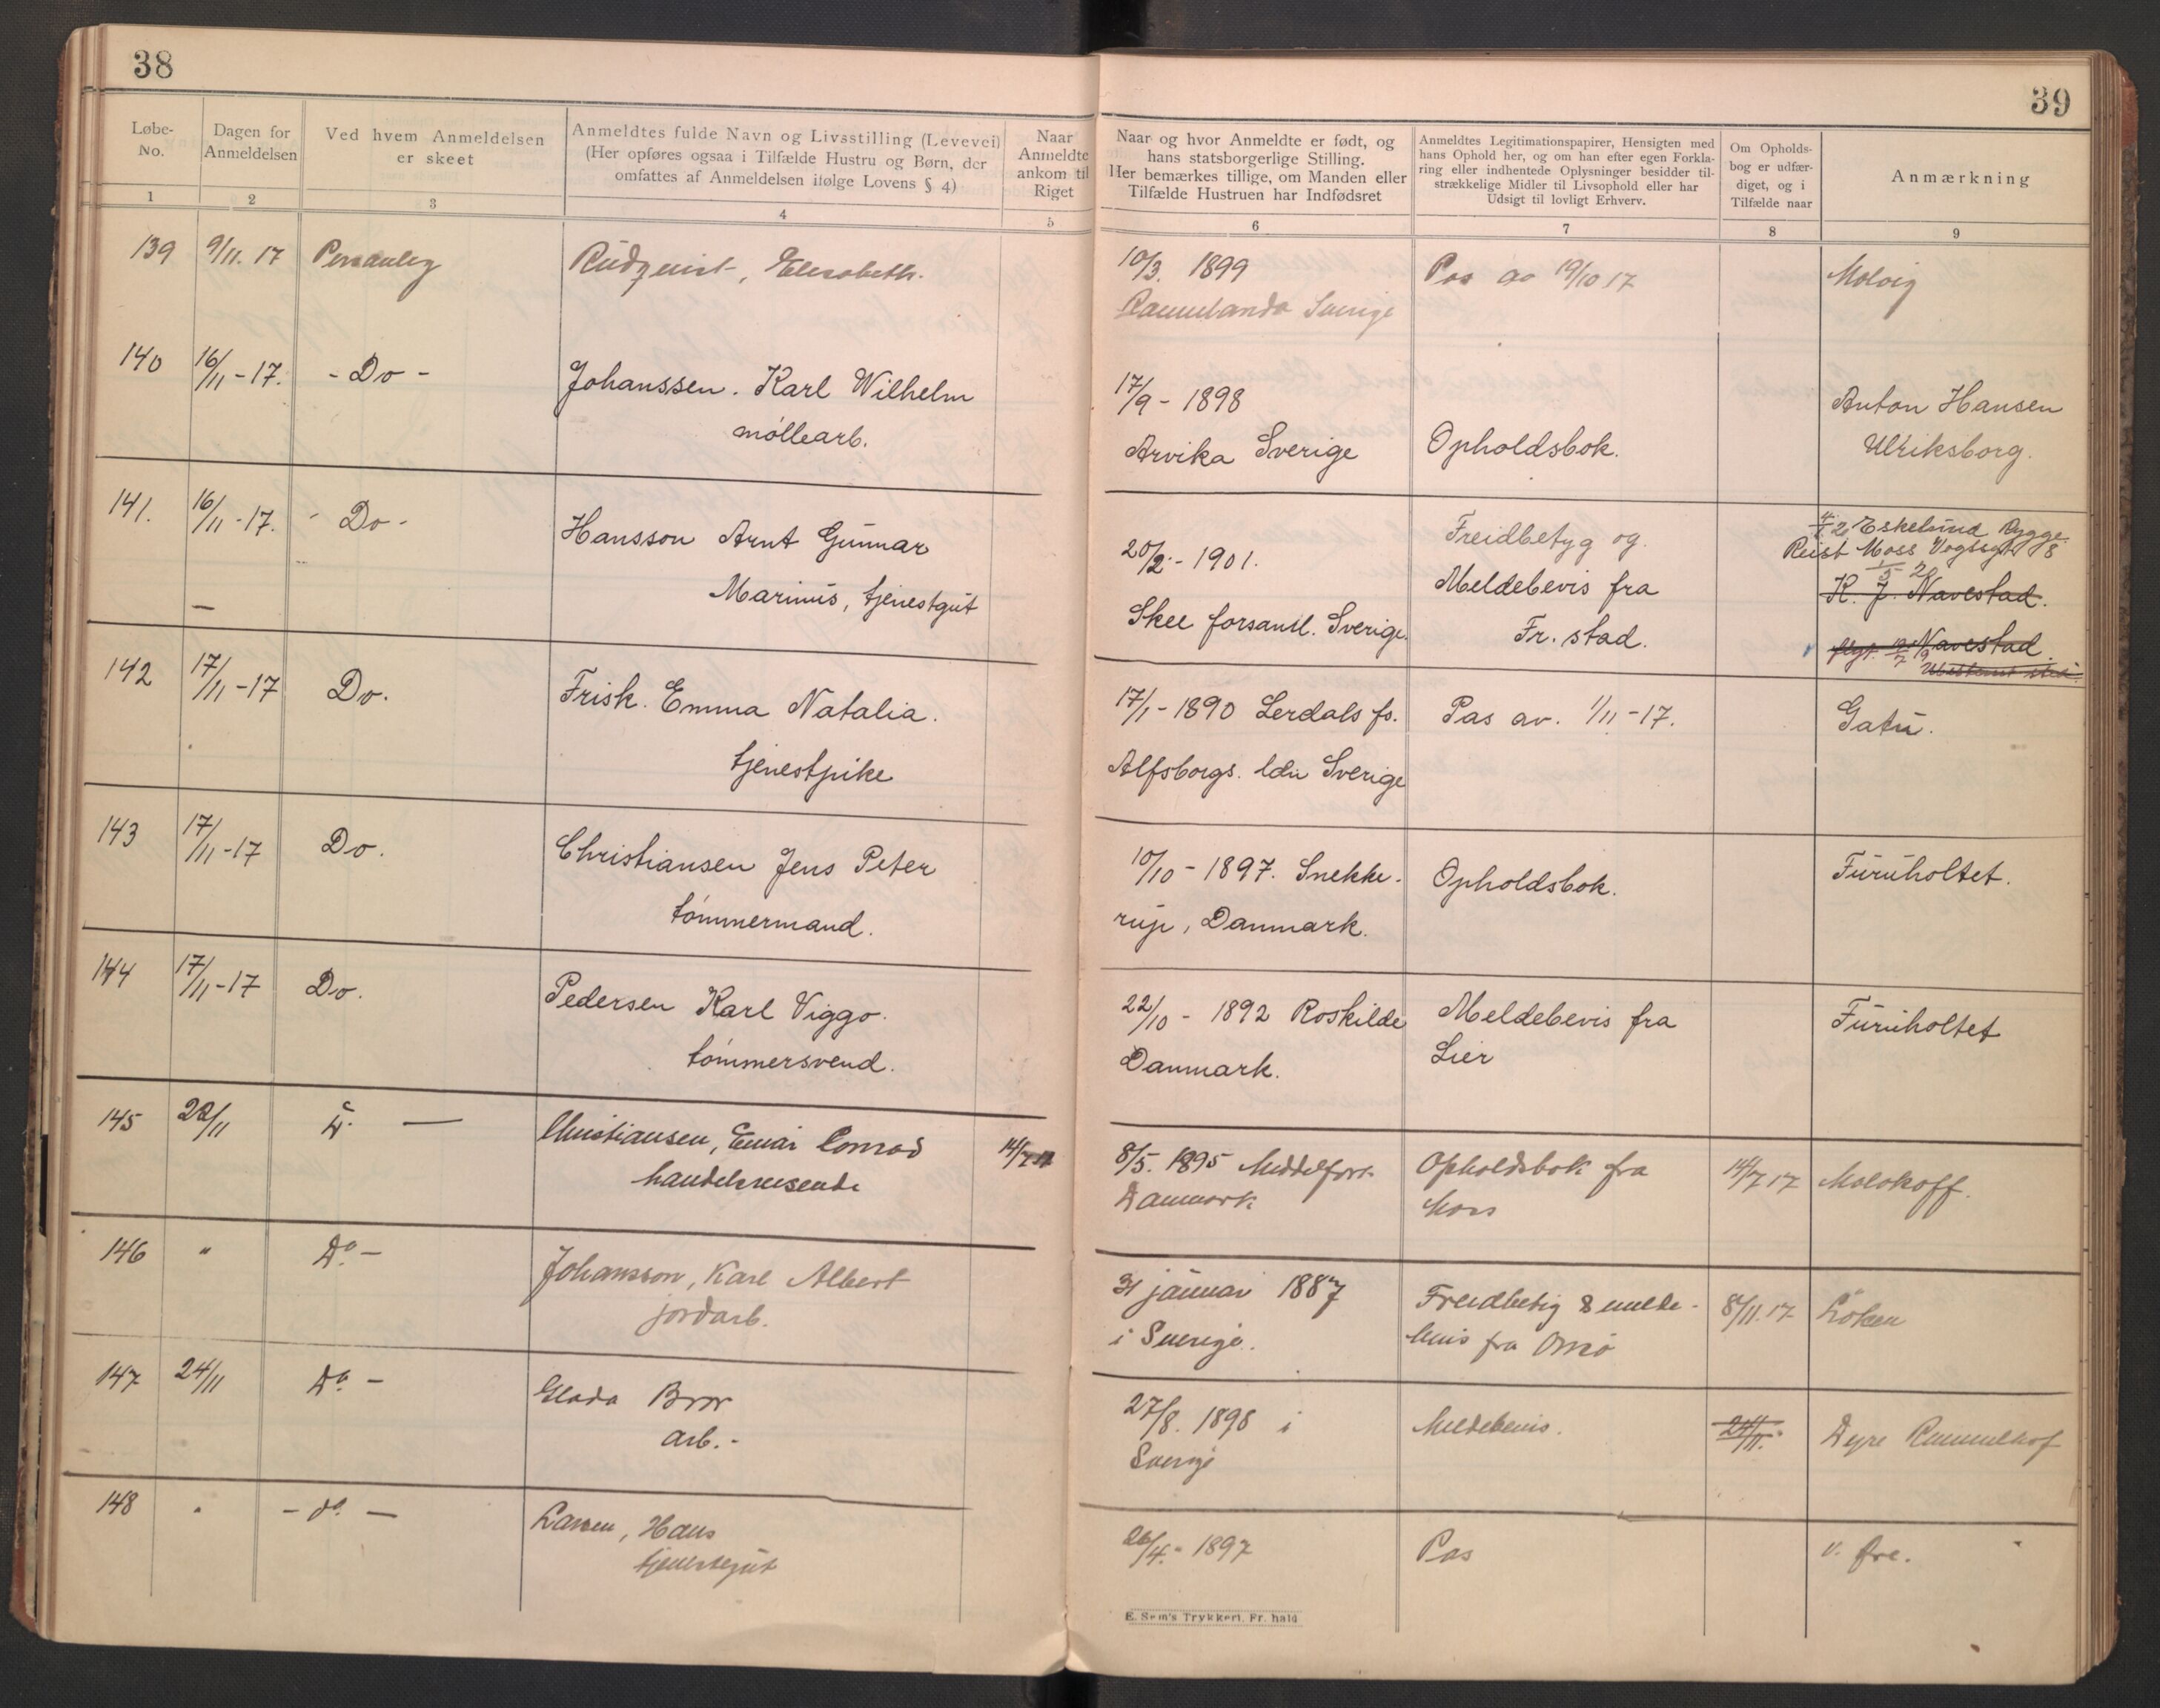 38
39
Løbe-
No.
Dagen for
Anmeldelsen
Ved hvem Anmeldelsen
er skeet
Anmeldtes fulde Navn og Livsstilling (Levevei)
(Her opføres ogsaa i Tilfælde Hustru og Børn, der
omfattes af Anmeldelsen ifølge Lovens § 4)
Naar
Anmeldte
ankom til
Riget
Naar og hvor Anmeldte er født, og
hans statsborgerlige Stilling.
Her bemærkes tillige, om Manden eller
Tilfælde Hustruen har Indfødsret
Anmeldtes Legitimationspapirer, Hensigten med
hans Ophold her, og om han efter egen Forkla-
ring eller indhentede Oplysninger besidder til-
strækkelige Midler til Livsophold eller har
Udsigt til lovligt Erhverv.
Om Opholds-
bog er udfær-
diget, og i
Tilfælde naar
Anmærkning
1 2 3 4 5 6 7 8 9
139 9/11. 17 Personlig Rudquist, Elisabeth. 10/3. 1899 Pas av 19/10 17
Sverige
140 16/11-17. - Do - Johanssen. Karl Wilhelm 17/9 - 1898 Anton Hansen
møllearb. Arvika Sverige Opholdsbok. Ulriksborg.
141. 16/11-17. - Do - Hansson Arnt Gunnar 20/2 - 1901. Freidbetyg og Eskelund Rygge
Reist Moss Vogtsgt 8
Marinus, tjenestgut Skee forsaml. Sverige. Meldebevis fra K. J. Navestad.
Fr. stad. Navestad
142 17/11-17 Do. Frisk. Emma Natalia. 17/1-1890 Lerdals fs. Pas av. 1/11-17. Gatu.
tjenestpike Alfsborgs. län Sverige
143 17/11-17 Do. Christiansen Jens Peter 10/10 - 1897. Snekke- Opholdsbok. Furuholtet.
tømmermand. rup, Danmark.
144 17/11-17 Do. Pedersen Karl Viggo. 22/10 - 1892 Roskilde Meldebevis fra Furuholtet
tømmersvend. Danmark. Lier
145 22/11 Do — Christiansen, Einar Conrad 14/7 17 8/5. 1895 Middelfart Opholdsbok fra 14/7 17 Molokoff.
handelsreisende Danmark Moss
146 " Do - Johansson, Karl Albert 31 januar 1887 Freidbetig & melde- 8/11. 17 Løken
jordarb. i Sverige. bevis fra Onsø
147 24/11 Do - Glada Bror 27/8. 1898 i Meldebevis. 24/11. Dyre
arb. - Sverige
148 " - do - Larsen, Hans 26/4. - 1897 Pas
tjenestegut
E. Sem's Trykkeri, Fr. hald